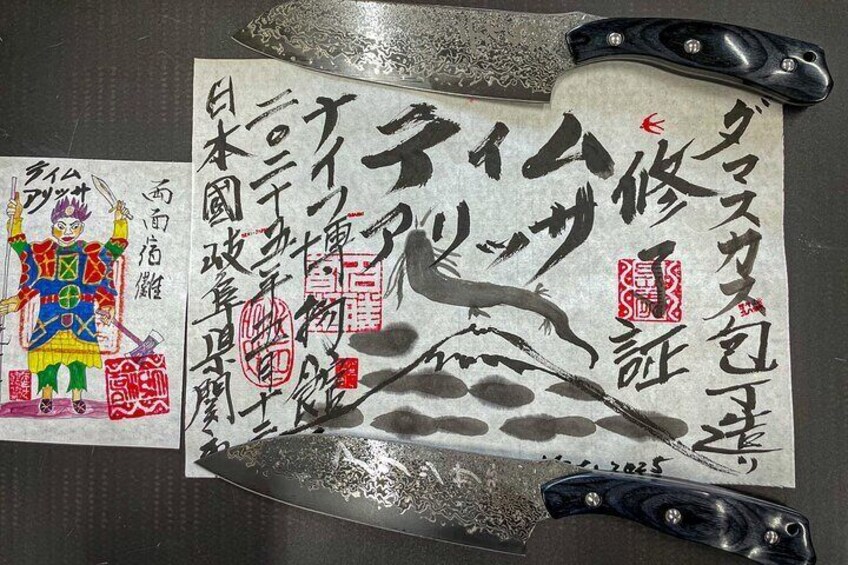 ダマスカス包丁造り
修了証
ティム
アリッサ
ナイフ博物館
二〇二十五年五月十
日本國岐阜県関
2025
ティム
アリッサ
両面宿儺
アリッサ